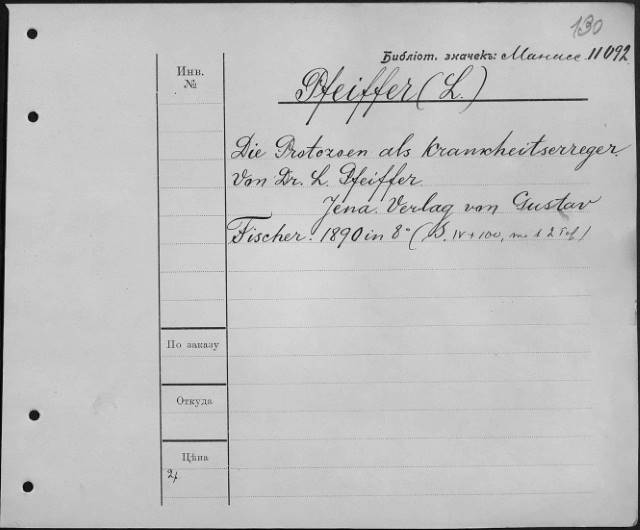 130
Библіот. значекъ: Манасс. 11092
Инв.
№
Pfeiffer (L.)
Die Protozoen als Krankheitserreger.
Von Dr. L. Pfeiffer.
Jena. Verlag von Gustav
Fischer. 1890 in 8° (S. IV + 100,
По заказу
Откуда
Цѣна